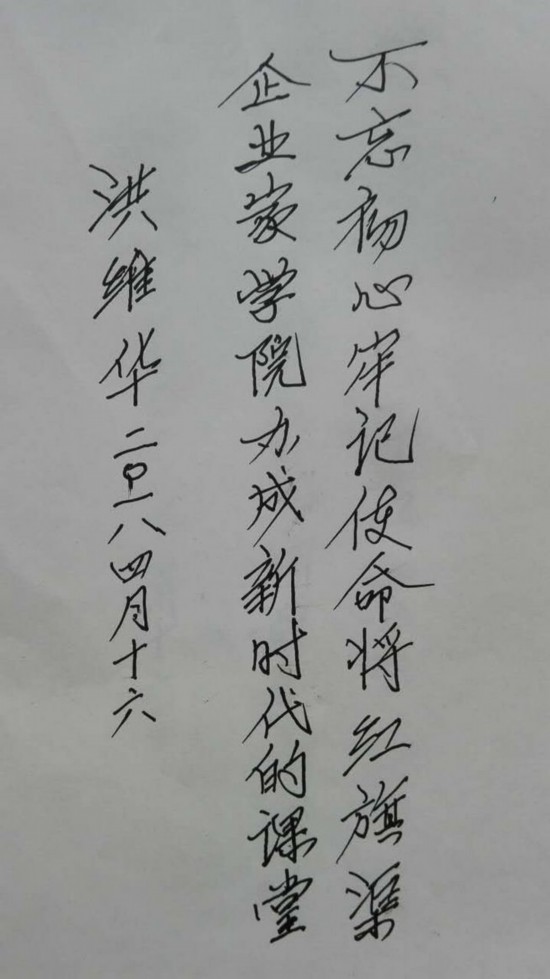 不忘初心牢记使命将红旗渠
企业家学院办成新时代的课堂
洪维华二〇一八四月十六